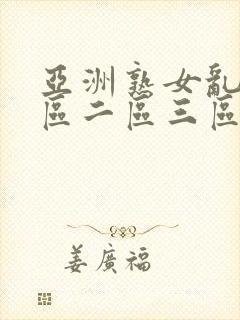 亞洲熟女亂
區二區三區
姜廣福